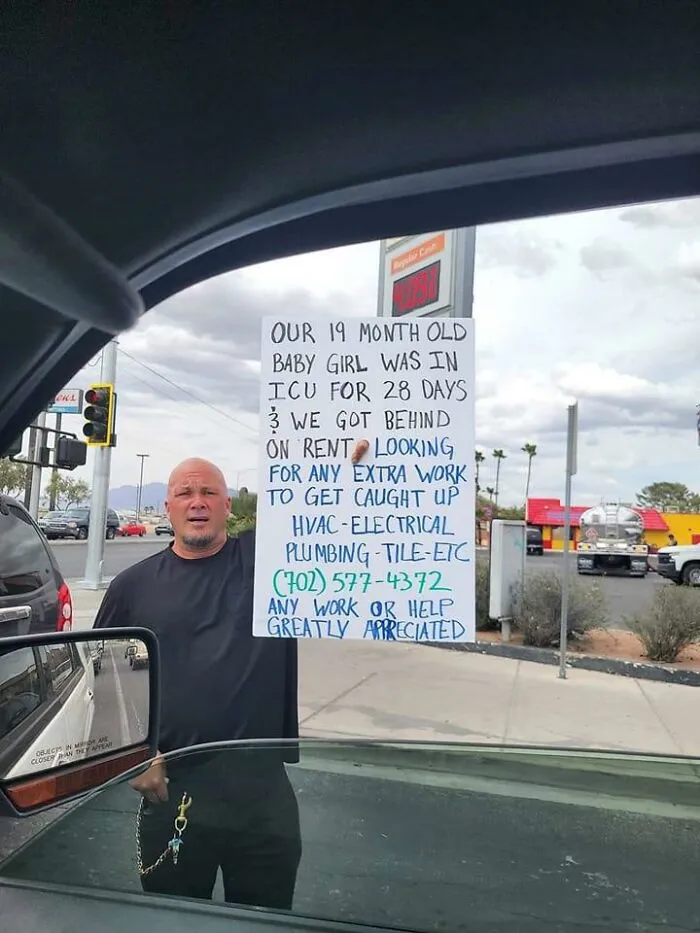 Regular Cash
OUR 19 MONTH OLD
BABY GIRL WAS IN
ICU FOR 28 DAYS
& WE GOT BEHIND
ON RENT LOOKING
FOR ANY EXTRA WORK
TO GET CAUGHT UP
HVAC-ELECTRICAL
PLUMBING-TILE-ETC
(702) 577-4372
ANY WORK OR HELP
GREATLY APPRECIATED
OBJECTS IN MIRROR ARE
CLOSER THAN THEY APPEAR